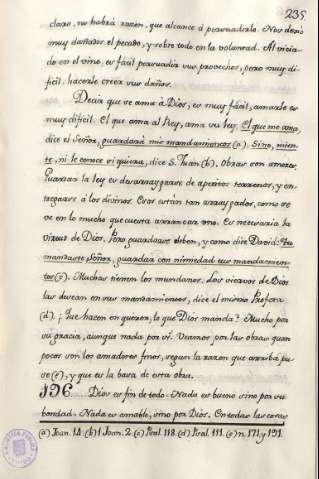 235
claro, no habrá razon, que alcance á persuadirlo. Nos dexó
muy dañados el pecado, y sobre todo en la voluntad. Al vicia-
do en el vino, es fácil persuadir sus provechos, pero muy di-
ficil hacerle creer sus daños.
Decir que se ama á Dios, es muy fácil, amarle es
muy dificil. El que ama al Rey, ama su ley. El que me ama,
dice el Señor, guardará mis mandamientos (a). Sino, mien-
te, ni le conoce ni quiera, dice S. Juan (b). Obras son amores.
Guardar la ley es desarraygarse de apetitos terrenos, y en-
tregarse á los divinos. Esos estan tan arraygados, como se
ve en lo mucho que cuesta arrancar uno. Es necesaria la
virtud de Dios. Pero guardarse deben, y como dice David: Tu
mandaste Señor, guardar con nimiedad tus mandamien-
tos (c). Muchos tienen los mundanos. Los siervos de Dios
las dexan en sus mandamientos, dice el mismo Profeta
(d). ¿Que hacen en querer, lo que Dios manda? Mucho por
su gracia, aunque nada por sí. Veamos por las obras quan
pocos son los amadores finos, segun la razon que arriba pu-
se (e), y que es la basa de esta obra.
196. Dios es fin de todo. Nada es bueno sino por su
bondad. Nada es amable, sino por Dios. En todas las cosas
(a) Joan. 14. (b) 1 Joan. 2. (c) Psal. 118. (d) Psal. 111. (e) n. 171 y 191.